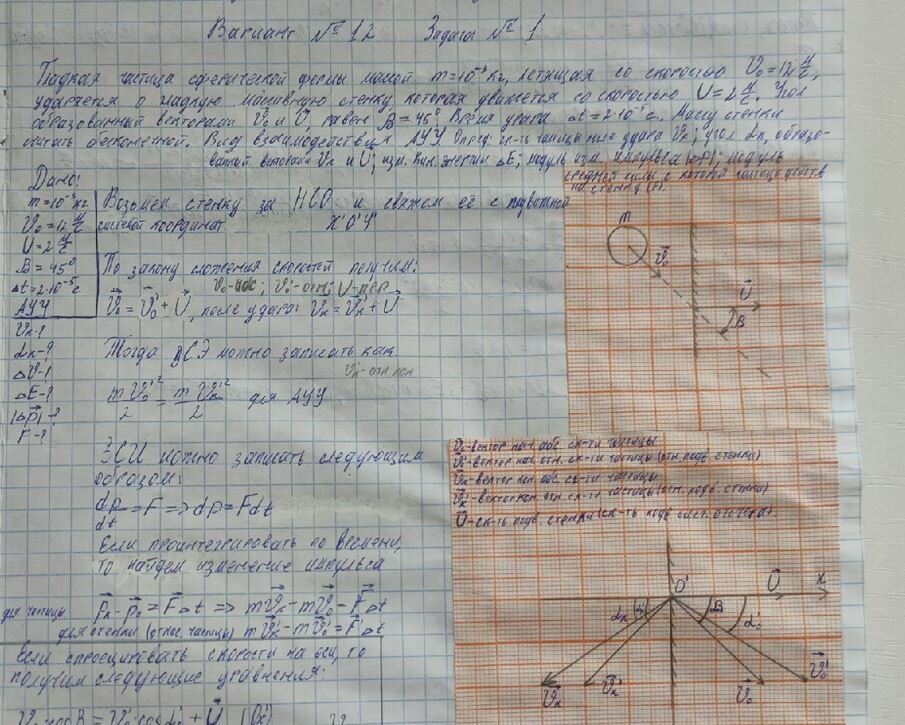 Вариант № 12 Задача № 1
Гладкая частица сферической формы массой m=10⁻³ кг, летящая со скоростью V₀=12 м/с,
ударяется о гладкую массивную стенку, которая движется со скоростью U=2 м/с. Угол
образованный векторами V₀ и U равен β=45°. Время удара Δt=2·10⁻⁵ с. Массу стенки
считать бесконечной. Вид взаимодействия АУУ. Опред. ск-ть частицы после удара Vк; угол αк, образо-
ванный векторами Vк и U; изм. кин. энергии ΔE; модуль изм. импульса |ΔP|; модуль
средней силы, с которой частица действ.
по стенку (F).
Дано:
m=10⁻³ кг
V₀=12 м/с
U=2 м/с
β=45°
Δt=2·10⁻⁵ с
АУУ
Vк-?
αк-?
ΔV-?
ΔE-?
|ΔP|-?
F-?
Возьмем стенку за НСО и свяжем её с подвижной
системой координат X'O'Y'
По закону сложения скоростей получим:
V₀-абс; V₀'-отн; U-пер
V₀=V₀'+U, после удара: Vк=Vк'+U
Тогда ЗСЭ можно записать как
Vк'-отн кон
mV₀'²/2 = mVк'²/2 для АУУ
ЗСИ можно записать следующим
образом:
dp/dt=F => dp=Fdt
Если проинтегрировать по времени,
то найдем изменение импульса
для частицы Pк-P₀=FΔt => mVк-mV₀=FΔt
для стенки (относ. частицы) mVк'-mV₀'=FΔt
Если спроецировать скорости на оси, то
получим следующие уравнения:
V₀ cosβ = V₀' cosα₀' + U (Ox')
m
V₀
U
β
V₀-вектор нач. абс ск-ти частицы
V₀'-вектор нач. отн. ск-ти частицы (отн. подв. стенки)
Vк-вектор кон. абс. ск-ти частицы.
Vк'-вектор кон. отн. ск-ти частицы (отн. подв. стенки)
U-ск-ть подв. стенки (ск-ть подв сист. отсчета).
O' U x
αк β α₀'
Vк Vк' V₀ V₀'